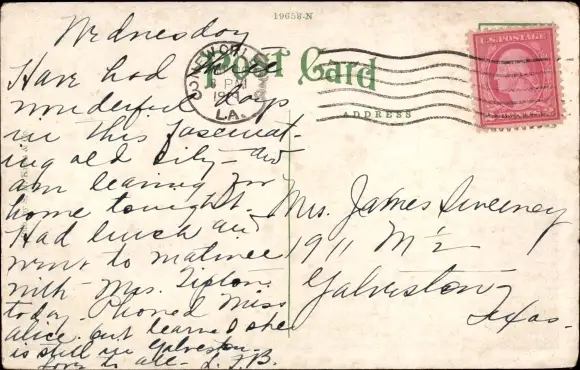 19658-N
Wednesday
Post Card
U.S. POSTAGE
LA.
ADDRESS
Have had three
wonderful days
in this fascinat-
ing old city – and
am leaving for
home tonight.
Had lunch and
went to matinee
with Mrs. Tipton
today. Phoned Miss
Alice, but learned she
is still in Galveston.
Love to all – L.T.B.
Mrs. James Sweeney
1911 M ½
Galveston
Texas.